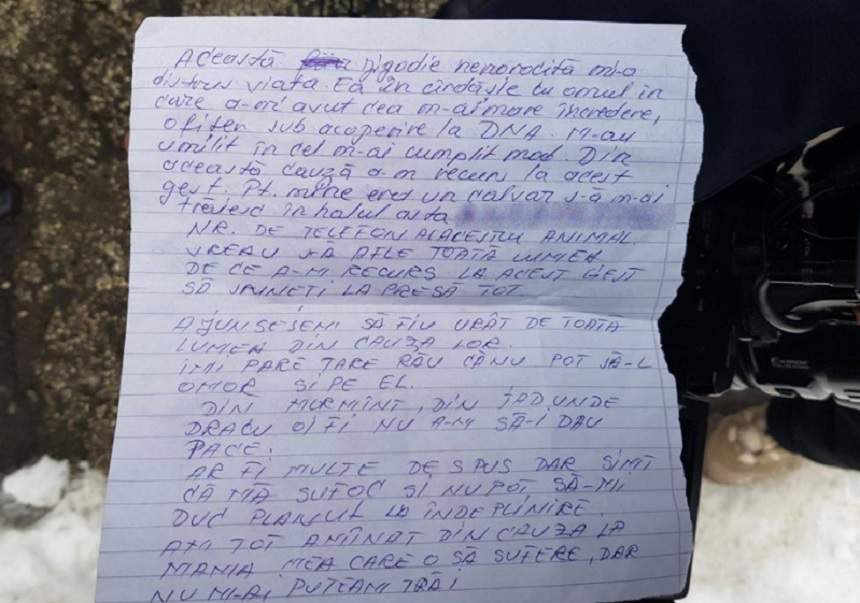 Această jigodie nenorocită mi-a
distrus viața. Ea în cîrdășie cu omul în
care a-m avut cea m-ai mare încredere,
ofițer sub acoperire la DNA. M-au
umilit în cel m-ai cumplit mod. Din
această cauză a-m recurs la acest
gest. Pt. mine era un calvar s-ă m-ai
trăiesc în halul ăsta
NR. DE TELEFON AL ACESTUI ANIMAL
VREAU SĂ AFLE TOATĂ LUMEA
DE CE A-M RECURS LA ACEST GEST
SĂ SPUNEȚI LA PRESĂ TOT.
AJUNSESEM SĂ FIU URÂT DE TOATĂ
LUMEA DIN CAUZA LOR.
ÎMI PARE TARE RĂU CĂ NU POT SĂ-L
OMOR ȘI PE EL.
DIN MORMÎNT, DIN IAD UNDE
DRACU OI FI NU A-M SĂ-I DAU
PACE.
AR FI MULTE DE SPUS DAR SIMT
CĂ MĂ SUFOC ȘI NU POT SĂ-MI
DUC PLANUL LA ÎNDEPLINIRE.
AM TOT AMÎNAT DIN CAUZA LA
MAMA MEA CARE O SĂ SUFERE, DAR
NU M-AI PUTEAM TRĂI